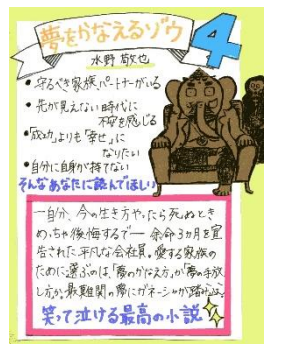 夢をかなえるゾウ 4
水野 敬也
・守るべき家族、パートナーがいる
・先が見えない時代に
不安を感じる
・「成功」よりも「幸せ」に
なりたい
・自分に自身が持てない
そんなあなたに読んでほしい
―自分、今の生き方やったら死ぬとき
めっちゃ後悔するで― 余命3ヵ月を宣
告された平凡な会社員。愛する家族の
ために選ぶのは、「夢のかなえ方」か「夢の手放
し方」か。最難関の夢にガネーシャが
笑って泣ける最高の小説